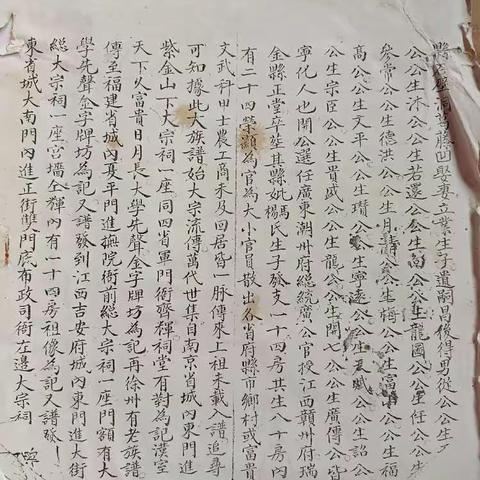 縣 葛藤凹娶妻立業生子遺嗣昌後得男從公公生
公公生沐公公生若還公公生 公公生龍國公公生任公公生
參常公公生德洪公公生月清公公生梅 公公生富 公公生福
高公公生文平公公生瓚公公生寧遠公公生 賦公公生詔公
公生宗臣公公生貴盛公公生龍公公生開七公公生廣傳公皆
寧化人也開公選任廣東潮州府總統廣公官授江西贛州府瑞
金縣正堂卒塟其縣妣馬楊氏生子發支一十四房共生八十房內
有二十四榮顯為官為大小官員散出各省府縣市鄉村或富貴
文武科甲士農工商未及回居皆一脉傳來上祖未載入譜追尋
可知據此大族譜始大宗流傳萬代世集自南京省城內東門進
紫金山下大宗祠一座同四省軍門衙齊輝祠堂有對為記漢室
天下久富貴日月長大學先聲金字牌坊為記再徐州有老族譜
傳至福建省城內夏平門進撫院衙前總大宗祠一座門額有大
學先聲金字牌坊為記又譜發到江西吉安府城內東門進大街
總大宗祠一座宮墻仝輝內有一十四房祖像為記又譜發
東省城大南門內進正街雙門底布政司衙左邊大宗祠